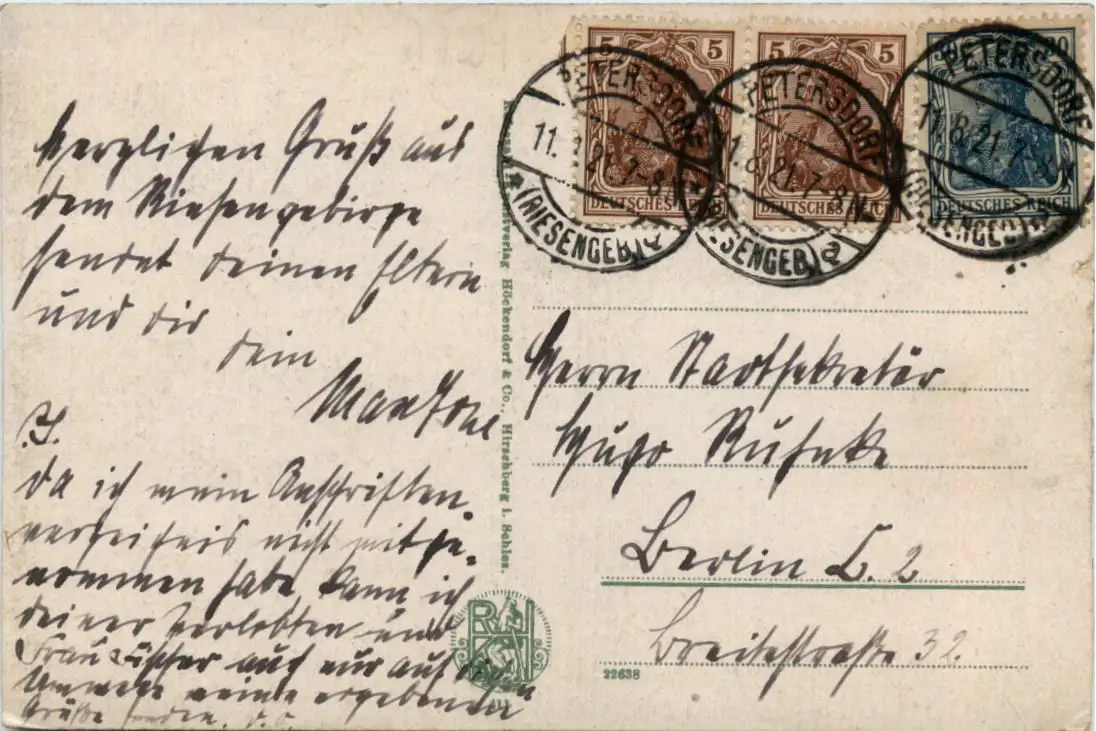 Herzlichen Gruß aus
dem Riesengebirge
sendet deinen Eltern
und dir
dein
N.
Da ich mein Anschriften-
verzeichnis nicht mitge-
nommen habe, kann ich
deiner Verlobten und
Frau Fischer auch nur auf diesem
Umwege meine ergebenen
Grüße senden. D. O.
5 5
DEUTSCHES REICH
5 5
DEUTSCHES REICH
20
DEUTSCHES REICH
PETERSDORF
11. 8. 21. 7-8 N.
* (RIESENGEB.) a
PETERSDORF
11. 8. 21. 7-8 N.
(RIESENGEB.) a
PETERSDORF
11. 8. 21. 7-8 N.
(RIESENGEB.)
Kunstverlag Höckendorf & Co., Hirschberg i. Schles.
Herrn Stadtsekretär
Hugo
Berlin C. 2
Breitestraße 32.
22638